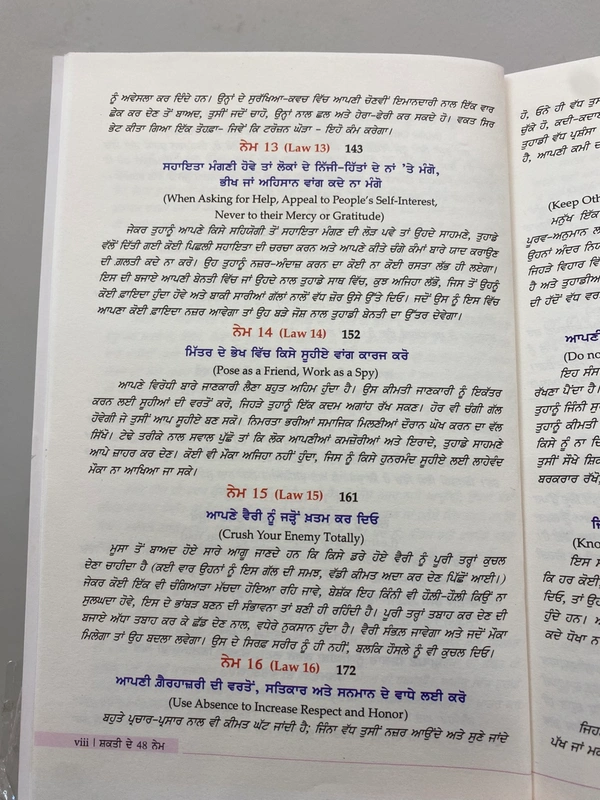 ਨੂੰ ਅਵੇਸਲਾ ਕਰ ਦਿੰਦੇ ਹਨ। ਉਨ੍ਹਾਂ ਦੇ ਸੁਰੱਖਿਆ-ਕਵਚ ਵਿੱਚ ਆਪਣੀ ਚੋਣਵੀਂ ਇਮਾਨਦਾਰੀ ਨਾਲ ਇੱਕ ਵਾਰ
ਛੇਕ ਕਰ ਦੇਣ ਤੋਂ ਬਾਅਦ, ਤੁਸੀਂ ਜਦੋਂ ਚਾਹੋ, ਉਨ੍ਹਾਂ ਨਾਲ ਛਲ ਅਤੇ ਹੇਰਾ-ਫੇਰੀ ਕਰ ਸਕਦੇ ਹੋ। ਵਕਤ ਸਿਰ
ਭੇਟ ਕੀਤਾ ਗਿਆ ਇੱਕ ਤੋਹਫ਼ਾ- ਜਿਵੇਂ ਕਿ ਟਰੋਜ਼ਨ ਘੋੜਾ - ਇਹੋ ਕੰਮ ਕਰੇਗਾ।
ਨੇਮ 13 (Law 13) 143
ਸਹਾਇਤਾ ਮੰਗਣੀ ਹੋਵੇ ਤਾਂ ਲੋਕਾਂ ਦੇ ਨਿੱਜੀ-ਹਿੱਤਾਂ ਦੇ ਨਾਂ 'ਤੇ ਮੰਗੋ,
ਭੀਖ ਜਾਂ ਅਹਿਸਾਨ ਵਾਂਗ ਕਦੇ ਨਾ ਮੰਗੋ
(When Asking for Help, Appeal to People's Self-Interest,
Never to their Mercy or Gratitude)
ਜੇਕਰ ਤੁਹਾਨੂੰ ਆਪਣੇ ਕਿਸੇ ਸਹਿਯੋਗੀ ਤੋਂ ਸਹਾਇਤਾ ਮੰਗਣ ਦੀ ਲੋੜ ਪਵੇ ਤਾਂ ਉਹਦੇ ਸਾਹਮਣੇ, ਤੁਹਾਡੇ
ਵੱਲੋਂ ਦਿੱਤੀ ਗਈ ਕੋਈ ਪਿਛਲੀ ਸਹਾਇਤਾ ਦੀ ਚਰਚਾ ਕਰਨ ਅਤੇ ਆਪਣੇ ਕੀਤੇ ਚੰਗੇ ਕੰਮਾਂ ਬਾਰੇ ਯਾਦ ਕਰਾਉਣ
ਦੀ ਗ਼ਲਤੀ ਕਦੇ ਨਾ ਕਰੋ। ਉਹ ਤੁਹਾਨੂੰ ਨਜ਼ਰ-ਅੰਦਾਜ਼ ਕਰਨ ਦਾ ਕੋਈ ਨਾ ਕੋਈ ਰਸਤਾ ਲੱਭ ਹੀ ਲਏਗਾ।
ਇਸ ਦੀ ਬਜਾਏ ਆਪਣੀ ਬੇਨਤੀ ਵਿੱਚ ਜਾਂ ਉਹਦੇ ਨਾਲ ਤੁਹਾਡੇ ਸਾਥ ਵਿੱਚ, ਕੁਝ ਅਜਿਹਾ ਲੱਭੋ, ਜਿਸ ਤੋਂ ਉਹਨੂੰ
ਕੋਈ ਫ਼ਾਇਦਾ ਹੁੰਦਾ ਹੋਵੇ ਅਤੇ ਬਾਕੀ ਸਾਰੀਆਂ ਗੱਲਾਂ ਨਾਲੋਂ ਵੱਧ ਜ਼ੋਰ ਉਸੇ ਉੱਤੇ ਦਿਓ। ਜਦੋਂ ਉਸ ਨੂੰ ਇਸ ਵਿੱਚ
ਆਪਣਾ ਕੋਈ ਫ਼ਾਇਦਾ ਨਜ਼ਰ ਆਵੇਗਾ ਤਾਂ ਉਹ ਬੜੇ ਜੋਸ਼ ਨਾਲ ਤੁਹਾਡੀ ਬੇਨਤੀ ਦਾ ਉੱਤਰ ਦੇਵੇਗਾ।
ਨੇਮ 14 (Law 14) 152
ਮਿੱਤਰ ਦੇ ਭੇਖ ਵਿੱਚ ਕਿਸੇ ਸੂਹੀਏ ਵਾਂਗ ਕਾਰਜ ਕਰੋ
(Pose as a Friend, Work as a Spy)
ਆਪਣੇ ਵਿਰੋਧੀ ਬਾਰੇ ਜਾਣਕਾਰੀ ਲੈਣਾ ਬਹੁਤ ਅਹਿਮ ਹੁੰਦਾ ਹੈ। ਉਸ ਕੀਮਤੀ ਜਾਣਕਾਰੀ ਨੂੰ ਇਕੱਤਰ
ਕਰਨ ਲਈ ਸੂਹੀਆਂ ਦੀ ਵਰਤੋਂ ਕਰੋ, ਜਿਹੜੇ ਤੁਹਾਨੂੰ ਇੱਕ ਕਦਮ ਅਗਾਂਹ ਰੱਖ ਸਕਣ। ਹੋਰ ਵੀ ਚੰਗੀ ਗੱਲ
ਹੋਵੇਗੀ ਜੇ ਤੁਸੀਂ ਆਪ ਸੂਹੀਏ ਬਣ ਸਕੋ। ਨਿਮਰਤਾ ਭਰੀਆਂ ਸਮਾਜਿਕ ਮਿਲਣੀਆਂ ਦੌਰਾਨ ਘੋਖ ਕਰਨ ਦਾ ਵੱਲ
ਸਿੱਖੋ। ਟੇਢੇ ਤਰੀਕੇ ਨਾਲ ਸਵਾਲ ਪੁੱਛੋ ਤਾਂ ਕਿ ਲੋਕ ਆਪਣੀਆਂ ਕਮਜ਼ੋਰੀਆਂ ਅਤੇ ਇਰਾਦੇ, ਤੁਹਾਡੇ ਸਾਹਮਣੇ
ਆਪੇ ਜ਼ਾਹਰ ਕਰ ਦੇਣ। ਕੋਈ ਵੀ ਮੌਕਾ ਅਜਿਹਾ ਨਹੀਂ ਹੁੰਦਾ, ਜਿਸ ਨੂੰ ਕਿਸੇ ਹੁਨਰਮੰਦ ਸੂਹੀਏ ਲਈ ਲਾਹੇਵੰਦ
ਮੌਕਾ ਨਾ ਆਖਿਆ ਜਾ ਸਕੇ।
ਨੇਮ 15 (Law 15) 161
ਆਪਣੇ ਵੈਰੀ ਨੂੰ ਜੜ੍ਹੋਂ ਖ਼ਤਮ ਕਰ ਦਿਓ
(Crush Your Enemy Totally)
ਮੂਸਾ ਤੋਂ ਬਾਅਦ ਹੋਏ ਸਾਰੇ ਆਗੂ ਜਾਣਦੇ ਹਨ ਕਿ ਕਿਸੇ ਡਰੇ ਹੋਏ ਵੈਰੀ ਨੂੰ ਪੂਰੀ ਤਰ੍ਹਾਂ ਕੁਚਲ
ਦੇਣਾ ਚਾਹੀਦਾ ਹੈ (ਕਈ ਵਾਰ ਉਹਨਾਂ ਨੂੰ ਇਸ ਗੱਲ ਦੀ ਸਮਝ, ਵੱਡੀ ਕੀਮਤ ਅਦਾ ਕਰ ਦੇਣ ਪਿੱਛੋਂ ਆਈ।)
ਜੇਕਰ ਕੋਈ ਇੱਕ ਵੀ ਚੰਗਿਆੜਾ ਮੱਚਦਾ ਹੋਇਆ ਰਹਿ ਜਾਵੇ, ਬੇਸ਼ੱਕ ਇਹ ਕਿੰਨੀ ਵੀ ਹੌਲੀ-ਹੌਲੀ ਕਿਉਂ ਨਾ
ਸੁਲਘਦਾ ਹੋਵੇ, ਇਸ ਦੇ ਭਾਂਬੜ ਬਣਨ ਦੀ ਸੰਭਾਵਨਾ ਤਾਂ ਬਣੀ ਹੀ ਰਹਿੰਦੀ ਹੈ। ਪੂਰੀ ਤਰ੍ਹਾਂ ਤਬਾਹ ਕਰ ਦੇਣ ਦੀ
ਬਜਾਏ ਅੱਧਾ ਤਬਾਹ ਕਰ ਕੇ ਛੱਡ ਦੇਣ ਨਾਲ, ਵਧੇਰੇ ਨੁਕਸਾਨ ਹੁੰਦਾ ਹੈ। ਵੈਰੀ ਸੰਭਲ ਜਾਵੇਗਾ ਅਤੇ ਜਦੋਂ ਮੌਕਾ
ਮਿਲੇਗਾ ਤਾਂ ਉਹ ਬਦਲਾ ਲਵੇਗਾ। ਉਸ ਦੇ ਸਿਰਫ਼ ਸਰੀਰ ਨੂੰ ਹੀ ਨਹੀਂ, ਬਲਕਿ ਹੌਸਲੇ ਨੂੰ ਵੀ ਕੁਚਲ ਦਿਓ।
ਨੇਮ 16 (Law 16) 172
ਆਪਣੀ ਗ਼ੈਰਹਾਜ਼ਰੀ ਦੀ ਵਰਤੋਂ, ਸਤਿਕਾਰ ਅਤੇ ਸਨਮਾਨ ਦੇ ਵਾਧੇ ਲਈ ਕਰੋ
(Use Absence to Increase Respect and Honor)
ਬਹੁਤੇ ਪ੍ਰਚਾਰ-ਪ੍ਰਸਾਰ ਨਾਲ ਵੀ ਕੀਮਤ ਘੱਟ ਜਾਂਦੀ ਹੈ; ਜਿੰਨਾ ਵੱਧ ਤੁਸੀਂ ਨਜ਼ਰ ਆਉਂਦੇ ਅਤੇ ਸੁਣੇ ਜਾਂਦੇ
viii | ਸ਼ਕਤੀ ਦੇ 48 ਨੇਮ
ਹੋ, ਓਨੇ ਹੀ ਵੱਧ ਤੁਸ
ਚੁੱਕੇ ਹੋ, ਕਦੀ-ਕਦਾ
ਤੁਹਾਡੀ ਵੱਧ ਪ੍ਰਸ਼ੰਸਾ
ਹੈ, ਆਪਣੀ ਕਮੀ ਦ
(Keep Oth
ਮਨੁੱਖ ਇੱਕ
ਪੂਰਵ-ਅਨੁਮਾਨ ਲ
ਉਹਨਾਂ ਅੰਦਰ ਨਿਯ
ਜਿਹੜੇ ਵਿਹਾਰ ਵਿੱ
ਹੈ ਅਤੇ ਤੁਹਾਡੀਆਂ
ਦੀ ਹੱਦੋਂ ਵੱਧ ਵਰ
ਆਪਣੀ
(Do no
ਇਹ ਸੰਸ
ਰੱਖਣਾ ਪੈਂਦਾ ਹੈ।
ਤੁਹਾਨੂੰ ਜਿੰਨੀ ਸੁ
ਤੁਹਾਨੂੰ ਕੀਮਤੀ
ਕਿਸੇ ਨੂੰ ਨਾ ਦਿ
ਤੁਸੀਂ ਸੌਖੇ ਸ਼ਿਕ
ਬਰਕਰਾਰ ਰੱਖੋ
ਜਿ
(Kno
ਇਸ ਸ
ਕਿ ਹਰ ਕੋਈ
ਦਿਓ, ਤਾਂ ਉਹ
ਹੁੰਦੇ ਹਨ। ਅ
ਕਦੇ ਧੋਖਾ ਨ
ਜਿਹ
ਪੱਖ ਜਾਂ ਮਕ